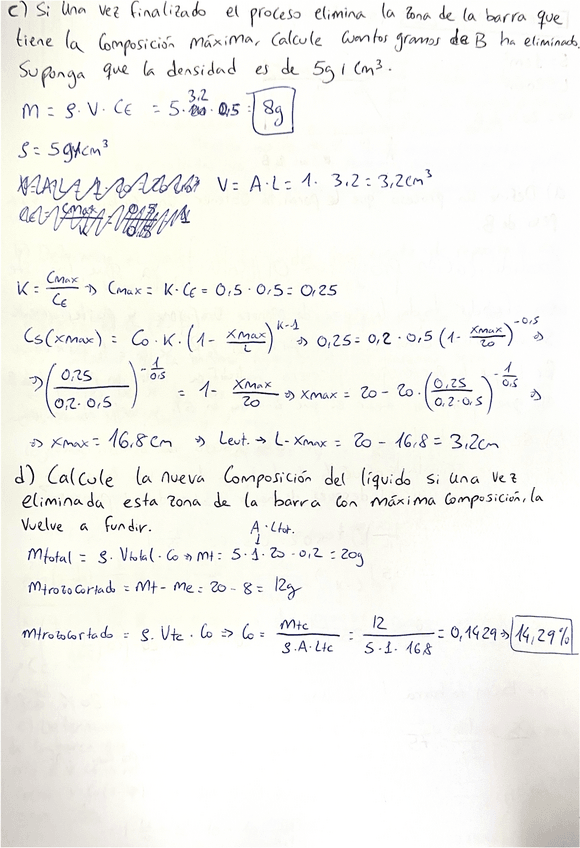 c) Si una vez finalizado el proceso elimina la zona de la barra que
tiene la composición máxima, calcule cuantos gramos de B ha eliminado.
Suponga que la densidad es de 5g / cm³.
M = ρ · V · Cε = 5 · 3,2 · 0,5 = 8g
ρ = 5g/cm³
V = A · L = 1 · 3,2 = 3,2cm³
K = Cmax / Cε → Cmax = K · Cε = 0,5 · 0,5 = 0,25
Cs(xmax) = Co · K · (1 - xmax / L)^K-1 ⇒ 0,25 = 0,2 · 0,5 (1 - xmax / 20)^-0,5 ⇒
⇒ (0,25 / 0,2 · 0,5)^-1/0,5 = 1 - xmax / 20 ⇒ xmax = 20 - 20 · (0,25 / 0,2 · 0,5)^-1/0,5 ⇒
⇒ xmax = 16,8cm ⇒ Leut. → L - xmax = 20 - 16,8 = 3,2cm
d) Calcule la nueva composición del líquido si una vez
eliminada esta zona de la barra con máxima composición, la
vuelve a fundir.
A · Ltot.
Mtotal = ρ · Vtotal · Co ⇒ mt = 5 · 1 · 20 · 0,2 = 20g
Mtrozo cortado = Mt - me = 20 - 8 = 12g
Mtrozo cortado = ρ · Vtc · Co ⇒ Co = Mtc / ρ · A · Ltc = 12 / 5 · 1 · 16,8 = 0,1429 ⇒ 14,29%